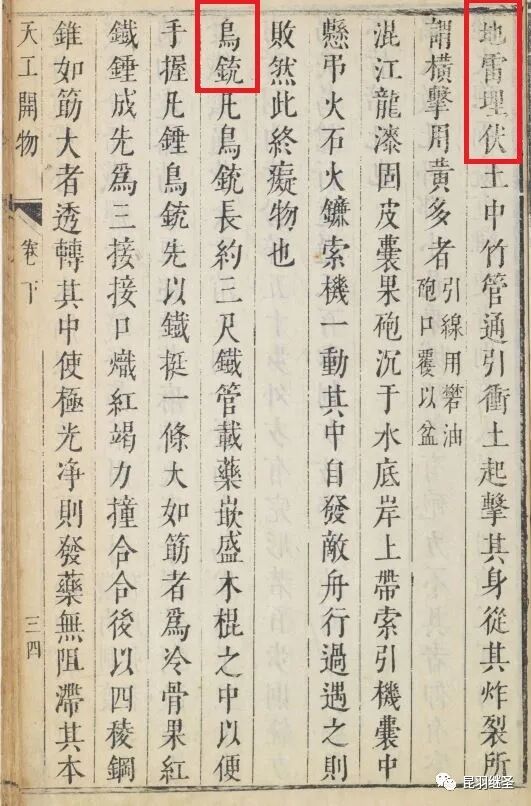 地雷埋伏土中竹管通引衝土起擊其身從其炸裂所
謂橫擊用黃多者
引線用礬油
砲口覆以盆
混江龍漆固皮囊果砲沉于水底岸上帶索引機囊中
懸弔火石火鐮索機一動其中自發敵舟行過遇之則
敗然此終癡物也
鳥銃凡鳥銃長約三尺鐵管載藥嵌盛木棍之中以便
手握凡錘鳥銃先以鐵挺一條大如筋者爲冷骨果紅
鐵錘成先爲三接接口熾紅竭力撞合合後以四稜鋼
錐如筋大者透轉其中使極光淨則發藥無阻滯其本
天工開物 卷下 三四
昆羽继圣